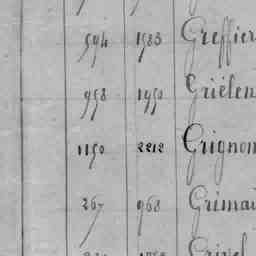 594 1583 Greffier
958 1950 Griélen
1150 2212 Grignon
267 968 Grimau